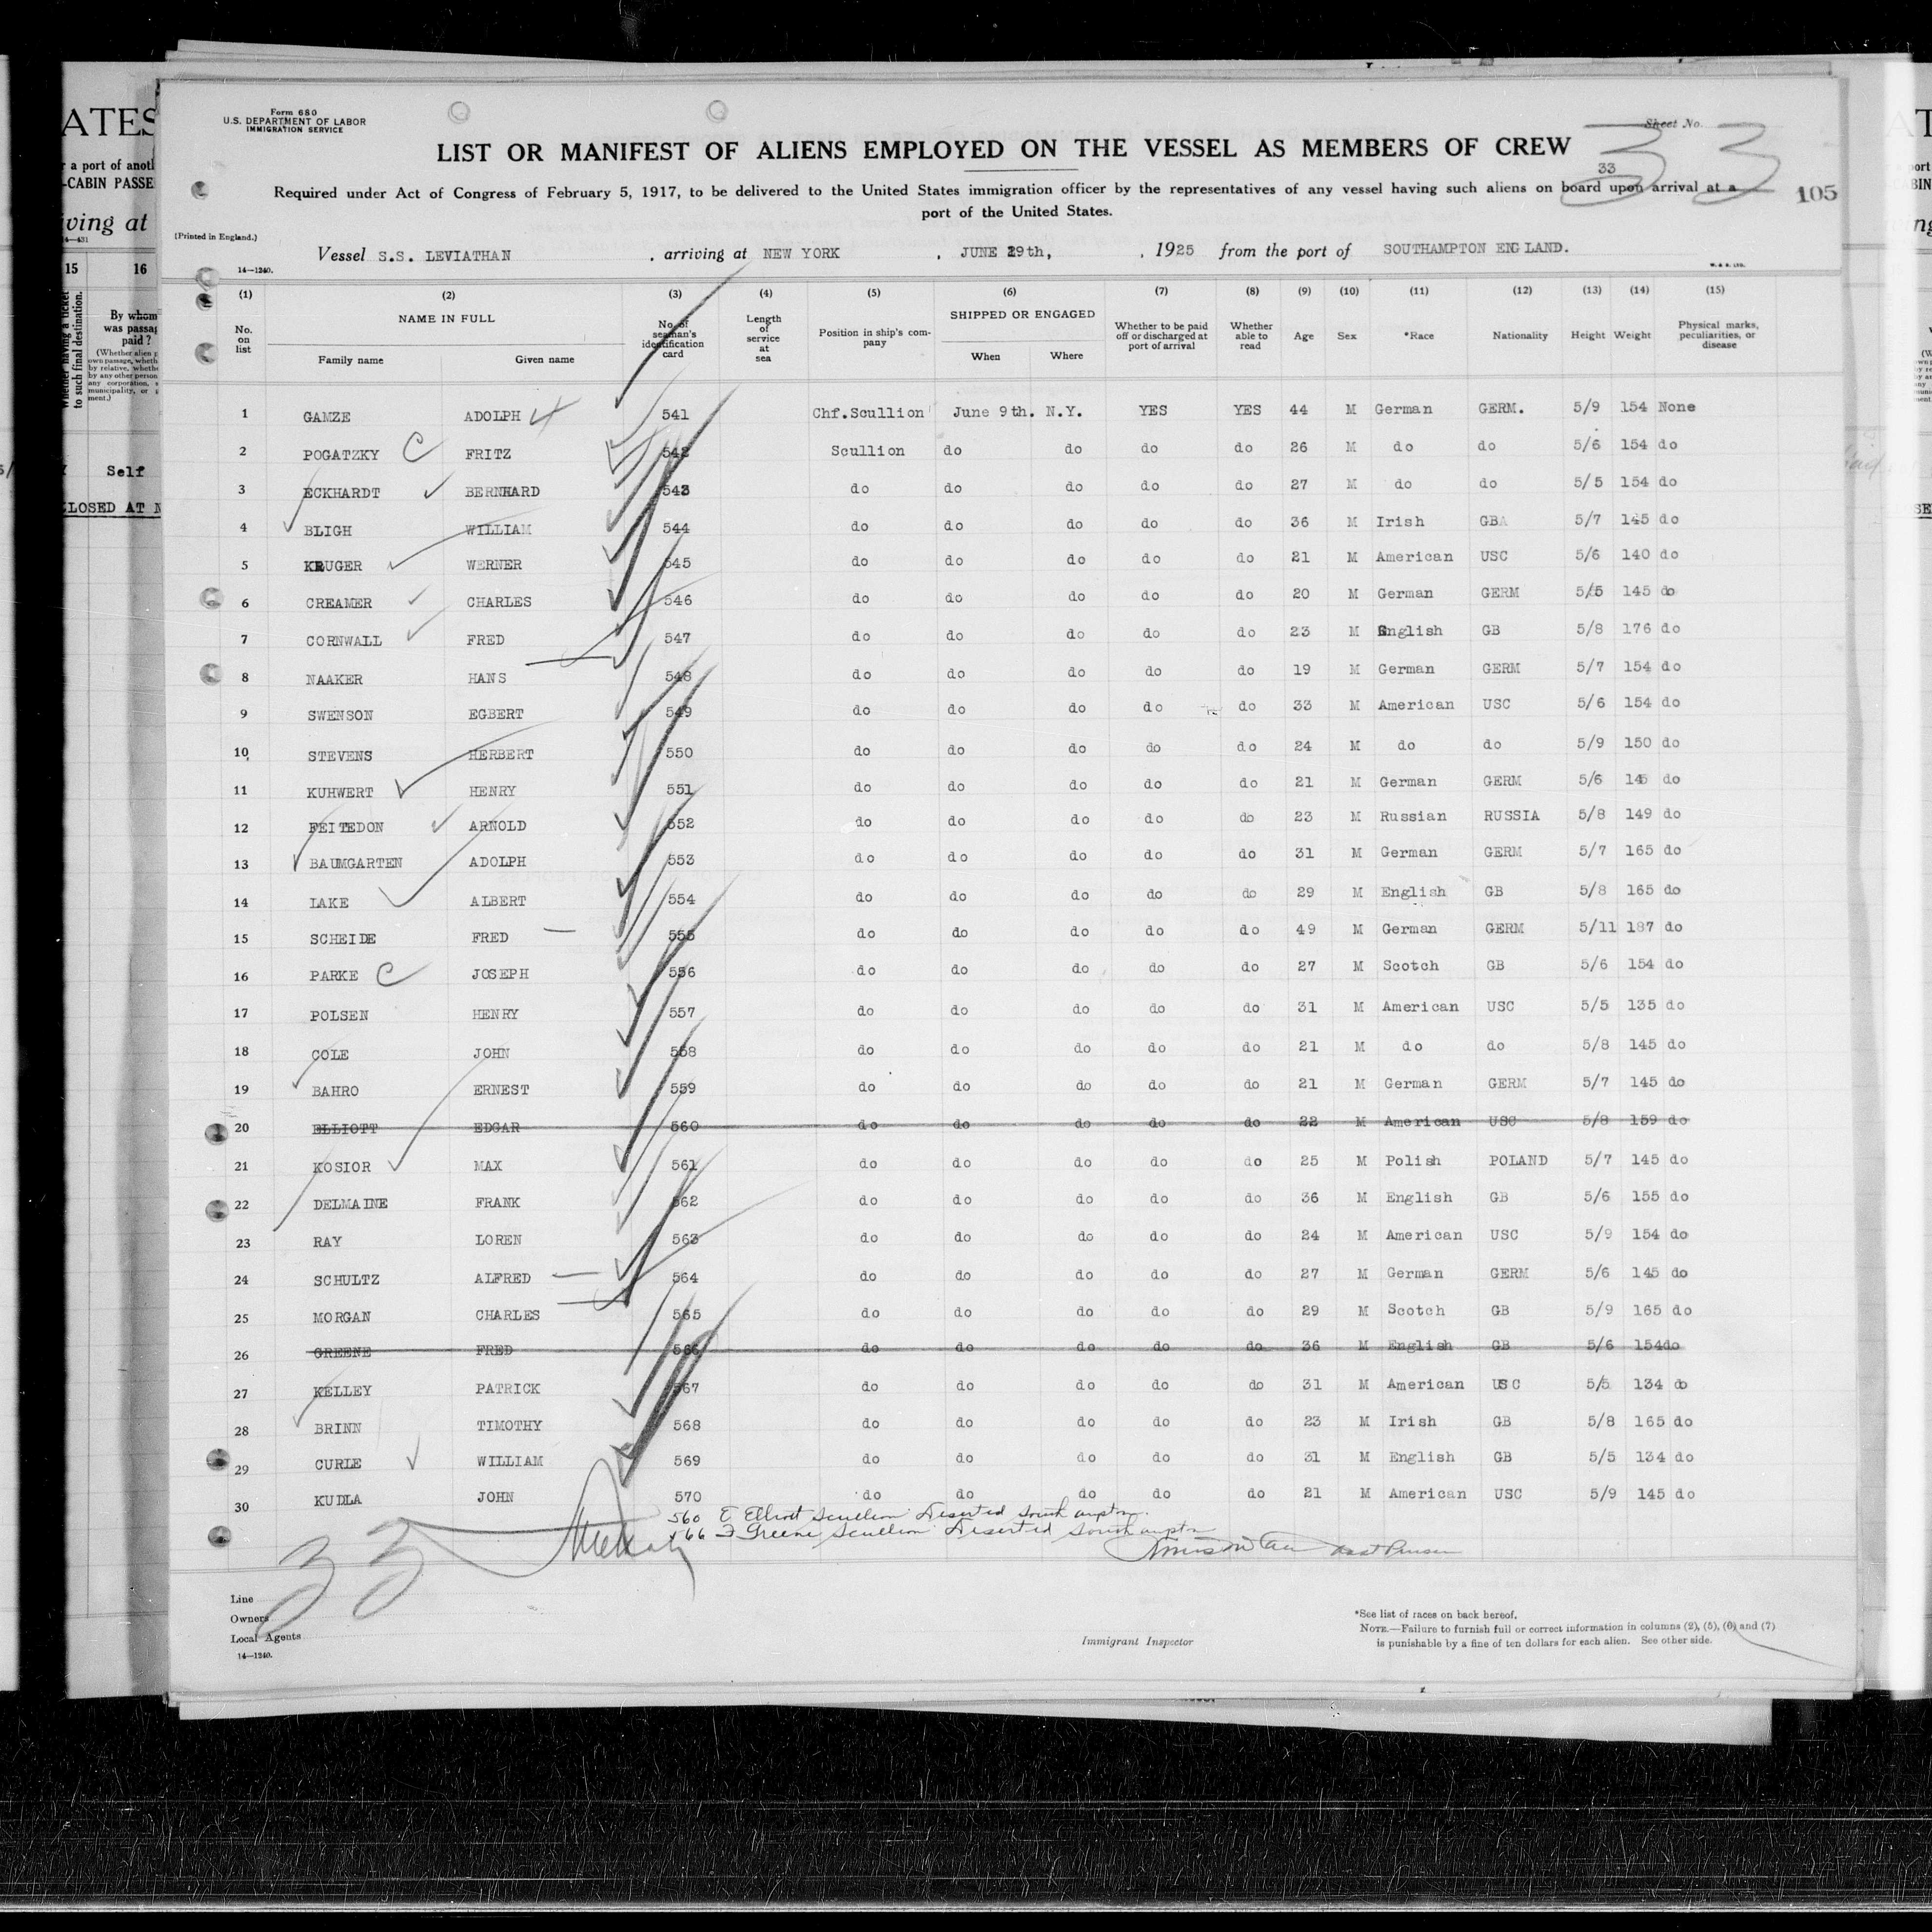 Form 680
U.S. DEPARTMENT OF LABOR
IMMIGRATION SERVICE
Sheet No.
33
33
105
LIST OR MANIFEST OF ALIENS EMPLOYED ON THE VESSEL AS MEMBERS OF CREW
Required under Act of Congress of February 5, 1917, to be delivered to the United States immigration officer by the representatives of any vessel having such aliens on board upon arrival at a
port of the United States.
(Printed in England.)
Vessel S.S. LEVIATHAN , arriving at NEW YORK , JUNE 29th, , 1925 from the port of SOUTHAMPTON ENGLAND.
14—1240.
(1) (2) (3) (4) (5) (6) (7) (8) (9) (10) (11) (12) (13) (14) (15)
No. on list NAME IN FULL Family name Given name No. of seaman's identification card Length of service at sea Position in ship's company SHIPPED OR ENGAGED When Where Whether to be paid off or discharged at port of arrival Whether able to read Age Sex *Race Nationality Height Weight Physical marks, peculiarities, or disease
1 GAMZE ADOLPH 541 Chf.Scullion June 9th. N.Y. YES YES 44 M German GERM. 5/9 154 None
2 POGATZKY C FRITZ 542 Scullion do do do do 26 M do do 5/6 154 do
3 ECKHARDT BERNHARD 543 do do do do do 27 M do do 5/5 154 do
4 BLIGH WILLIAM 544 do do do do do 36 M Irish GBA 5/7 145 do
5 KRUGER WERNER 545 do do do do do 21 M American USC 5/6 140 do
6 CREAMER CHARLES 546 do do do do do 20 M German GERM 5/5 145 do
7 CORNWALL FRED 547 do do do do do 23 M English GB 5/8 176 do
8 NAAKER HANS 548 do do do do do 19 M German GERM 5/7 154 do
9 SWENSON EGBERT 549 do do do do do 33 M American USC 5/6 154 do
10 STEVENS HERBERT 550 do do do do do 24 M do do 5/9 150 do
11 KUHWERT HENRY 551 do do do do do 21 M German GERM 5/6 145 do
12 FEITEDON ARNOLD 552 do do do do do 23 M Russian RUSSIA 5/8 149 do
13 BAUMGARTEN ADOLPH 553 do do do do do 31 M German GERM 5/7 165 do
14 LAKE ALBERT 554 do do do do do 29 M English GB 5/8 165 do
15 SCHEIDE FRED 555 do do do do do 49 M German GERM 5/11 187 do
16 PARKE C JOSEPH 556 do do do do do 27 M Scotch GB 5/6 154 do
17 POLSEN HENRY 557 do do do do do 31 M American USC 5/5 135 do
18 COLE JOHN 558 do do do do do 21 M do do 5/8 145 do
19 BAHRO ERNEST 559 do do do do do 21 M German GERM 5/7 145 do
20 ELLIOTT EDGAR 560 do do do do do 22 M American USC 5/8 159 do
21 KOSIOR MAX 561 do do do do do 25 M Polish POLAND 5/7 145 do
22 DELMAINE FRANK 562 do do do do do 36 M English GB 5/6 155 do
23 RAY LOREN 563 do do do do do 24 M American USC 5/9 154 do
24 SCHULTZ ALFRED 564 do do do do do 27 M German GERM 5/6 145 do
25 MORGAN CHARLES 565 do do do do do 29 M Scotch GB 5/9 165 do
26 GREENE FRED 566 do do do do do 36 M English GB 5/6 154 do
27 KELLEY PATRICK 567 do do do do do 31 M American USC 5/5 134 do
28 BRINN TIMOTHY 568 do do do do do 23 M Irish GB 5/8 165 do
29 CURLE WILLIAM 569 do do do do do 31 M English GB 5/5 134 do
30 KUDLA JOHN 570 do do do do do 21 M American USC 5/9 145 do
560 E Elliott Scullion Deserted Southampton.
566 F Greene Scullion Deserted Southampton
33
Line
Owners
Local Agents
14—1240.
Immigrant Inspector
*See list of races on back hereof.
NOTE.—Failure to furnish full or correct information in columns (2), (5), (6) and (7)
is punishable by a fine of ten dollars for each alien. See other side.
ATES
r a port of anoth
-CABIN PASSE
iving at
14—431
15 16
Whether having a ticket to such final destination.
By whom was passag paid?
Self
LOSED AT N